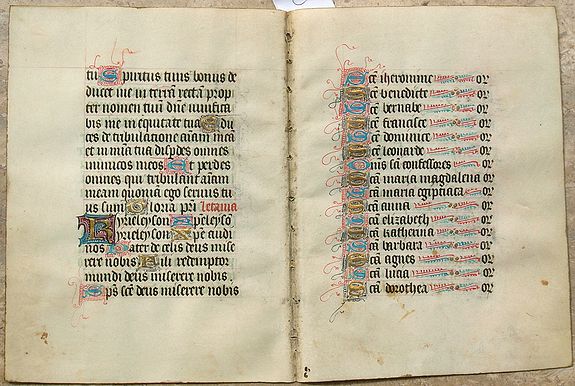 tu Spiritus tuus bonus de
ducet me in terrā rectā prop
ter nomen tuū dn̄e vivifica
bis me in equitate tua Edu
ces de tribulatione aīam meā
et in mīa tua disp̄des omnes
inimicos meos Et perdes
omnes qui tribulant aīam
meam quoniā ego servus tu
us sum Gloria pr̄i Letania
Kyrieleyson Xp̄eleyso
Kyrieleyson Xp̄e audi
nos Pater de celis deus mise
rere nobis Fili redemptor
mundi deus miserere nobis
Sp̄s sc̄e deus miserere nobis
Scē iheronime or
Scē benedicte or
Scē bernabe or
Scē francisce or
Scē dominice or
Scē leonarde or
Om̄s sc̄i confessores or
Scā maria magdalena or
Scā maria egiptiaca or
Scā anna or
Scā elizabeth or
Scā katherina or
Scā barbara or
Scā agnes or
Scā lucia or
Scā dorothea or